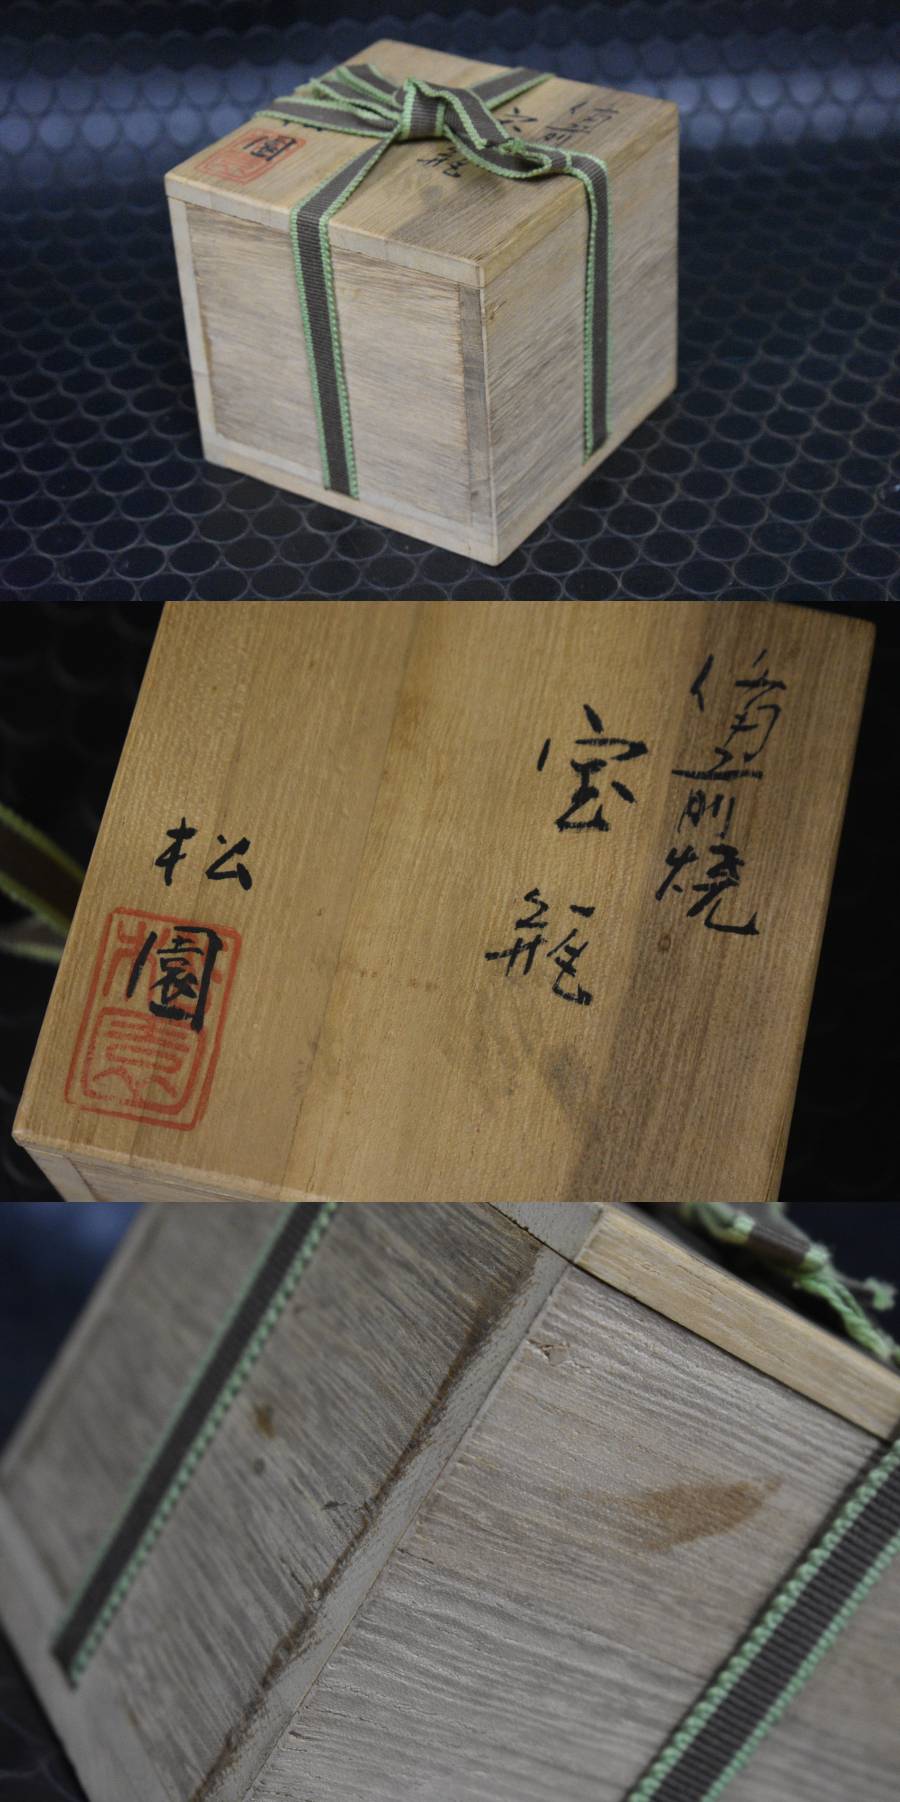 備前焼
宝瓶
松園